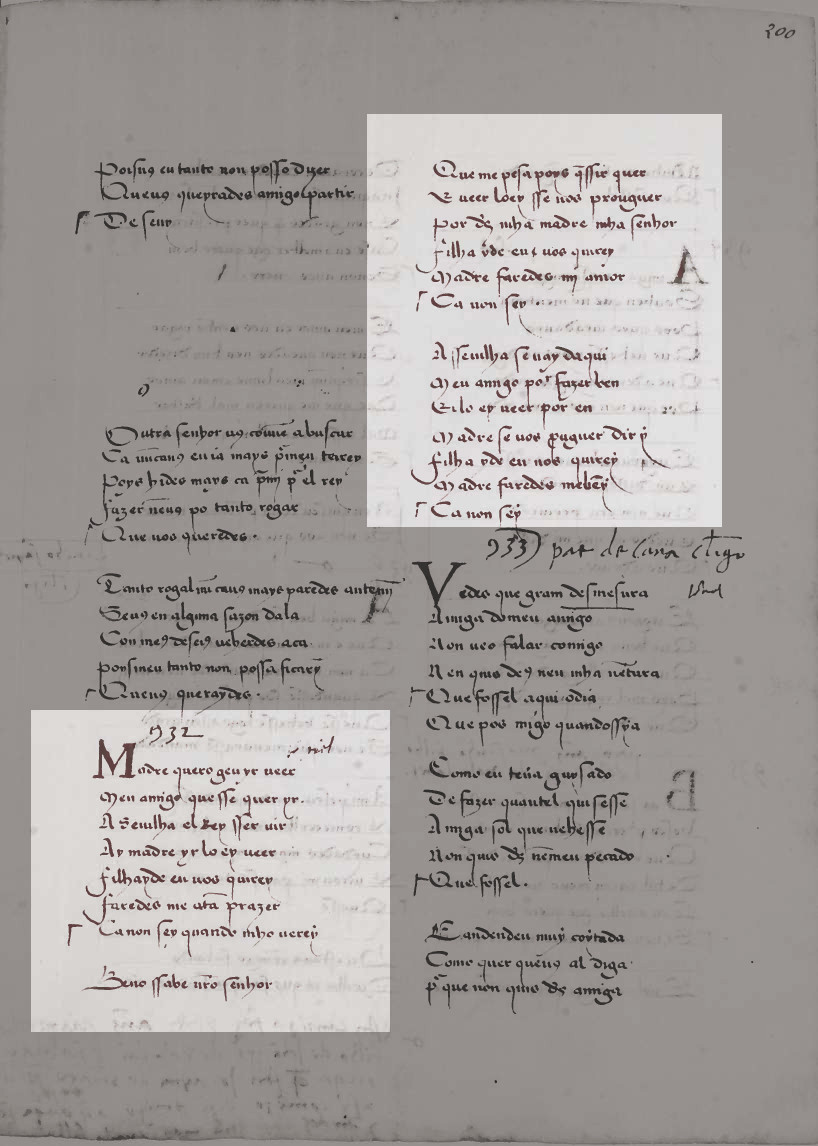 200
Poisus eu tanto non posso dizer
Que uos queyrades amigo partir
De seuir
Outra senhor uos conuē a buscar
Ca nūcaus eu ia mays
Poys hides mays ca p̄mj p̄ el rey
Fazer neus po tanto rogar
Que uos queredes .
Tanto rogal caus mays paredes
Seus en alguna sazon dala
Con meus deseius ueherdes aca
poys meu tanto non possa ficar
Queus queraydes .
932
Madre quero geu yr veer
Meu amigo que sse quer yr .
A Seuilha el Rey sser uir
Ay madre yr lo ey veer
Filhayde eu uos quirey
Faredes me atā prazer
Ca non sey quando mho uerey
Beno ssabe nr̄o senhor
Que me pesa poys q̄ssir quer
E veer loey sse uos prouguer
Por ds̄ mha madre mha senhor
Filha yde eu uos quirey
Madre faredes mj amor
Ca non sey
A sseuilha se uay daqui
Meu amigo por fazer ben
E ilo ey veer por en
Madre se uos prouguer dir y
Filha yde eu uos quirey
Madre faredes me bē y
Ca non sey
933
Vedes que gram desmesura
Amiga do meu amigo
Non ueo falar comigo
Nen quis deus neu mha uētura
Que fossel aqui odia
Que pos migo quandossya
Como eu teña guysado
De fazer quantel quisesse
Amiga sol que uehesse
Non quis ds̄ nē meu pecado
Que fossel .
E andendeu muy coytada
Como quer queuus al diga
p̄ que non quis ds̄ amiga